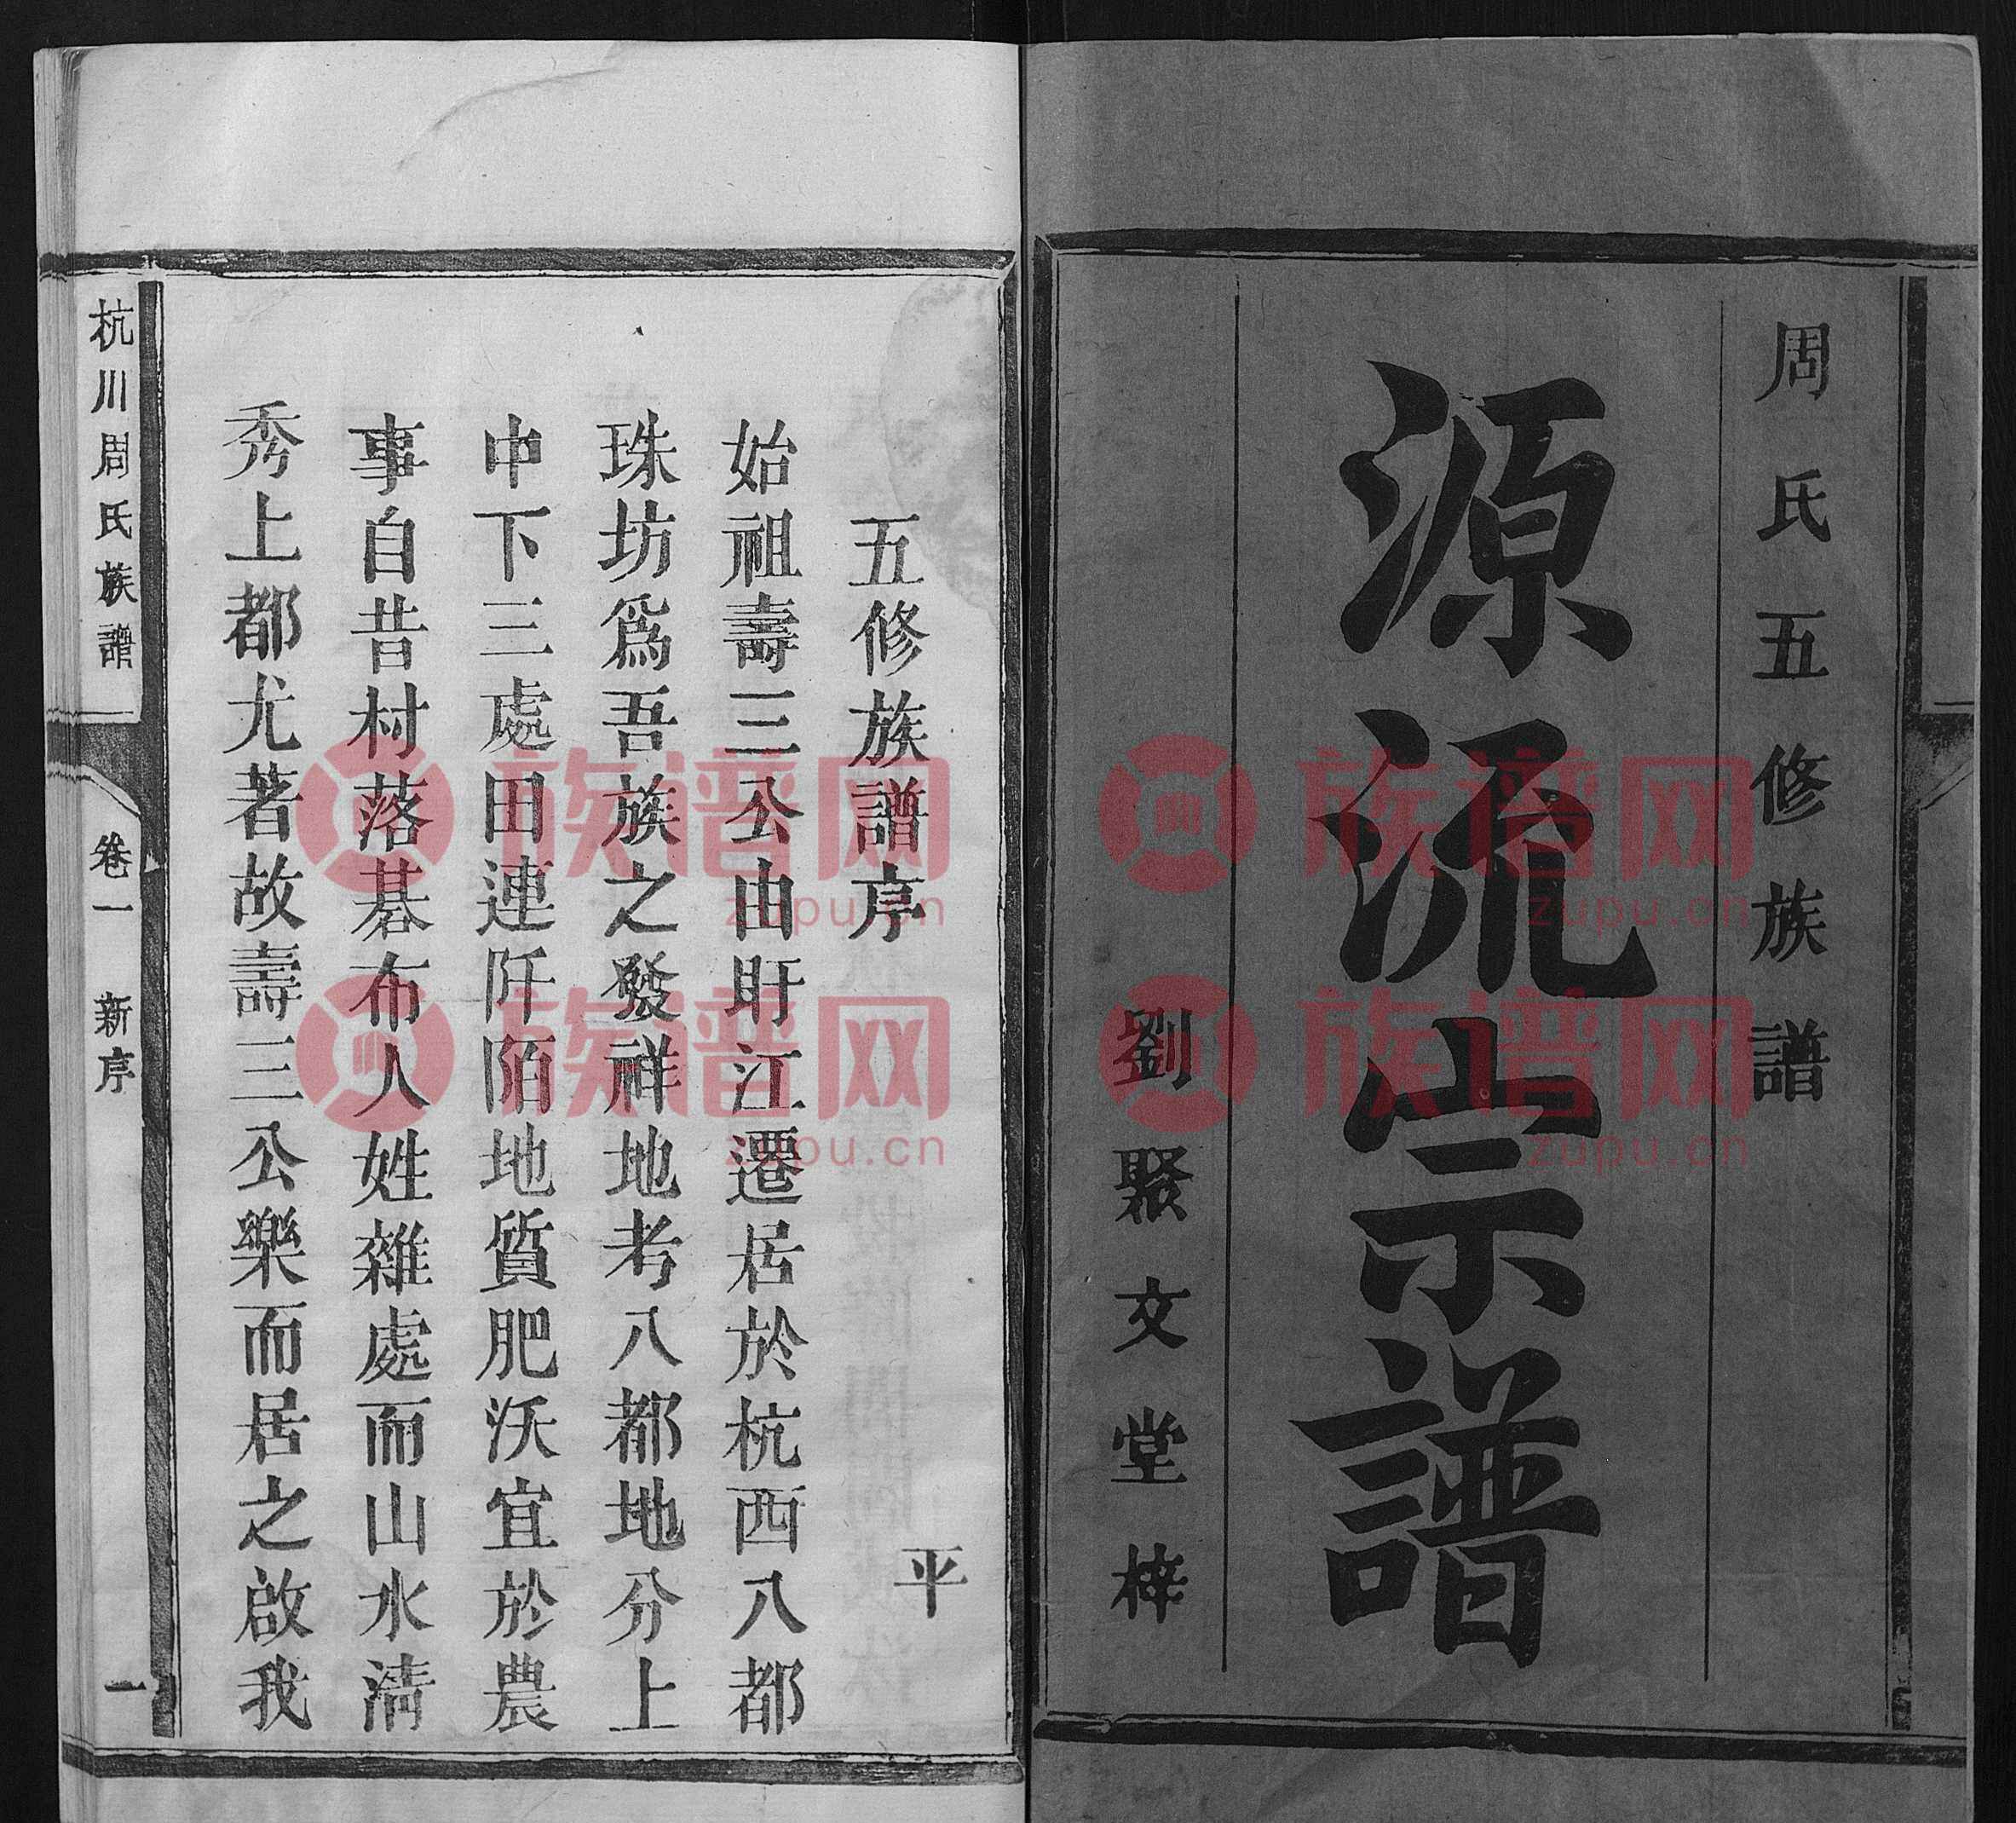 周氏五修族譜
源流宗譜
劉聚文堂梓
平
五修族譜序
始祖壽三公由盱江遷居於杭西八都
珠坊爲吾族之發祥地考八都地分上
中下三處田連阡陌地質肥沃宜於農
事自昔村落碁布人姓雜處而山水清
秀上都尤著故壽三公樂而居之啟我
杭川周氏族譜
卷一 新序
一
族谱网
zupu.cn
族谱网
zupu.cn
族谱网
zupu.cn
族谱网
zupu.cn